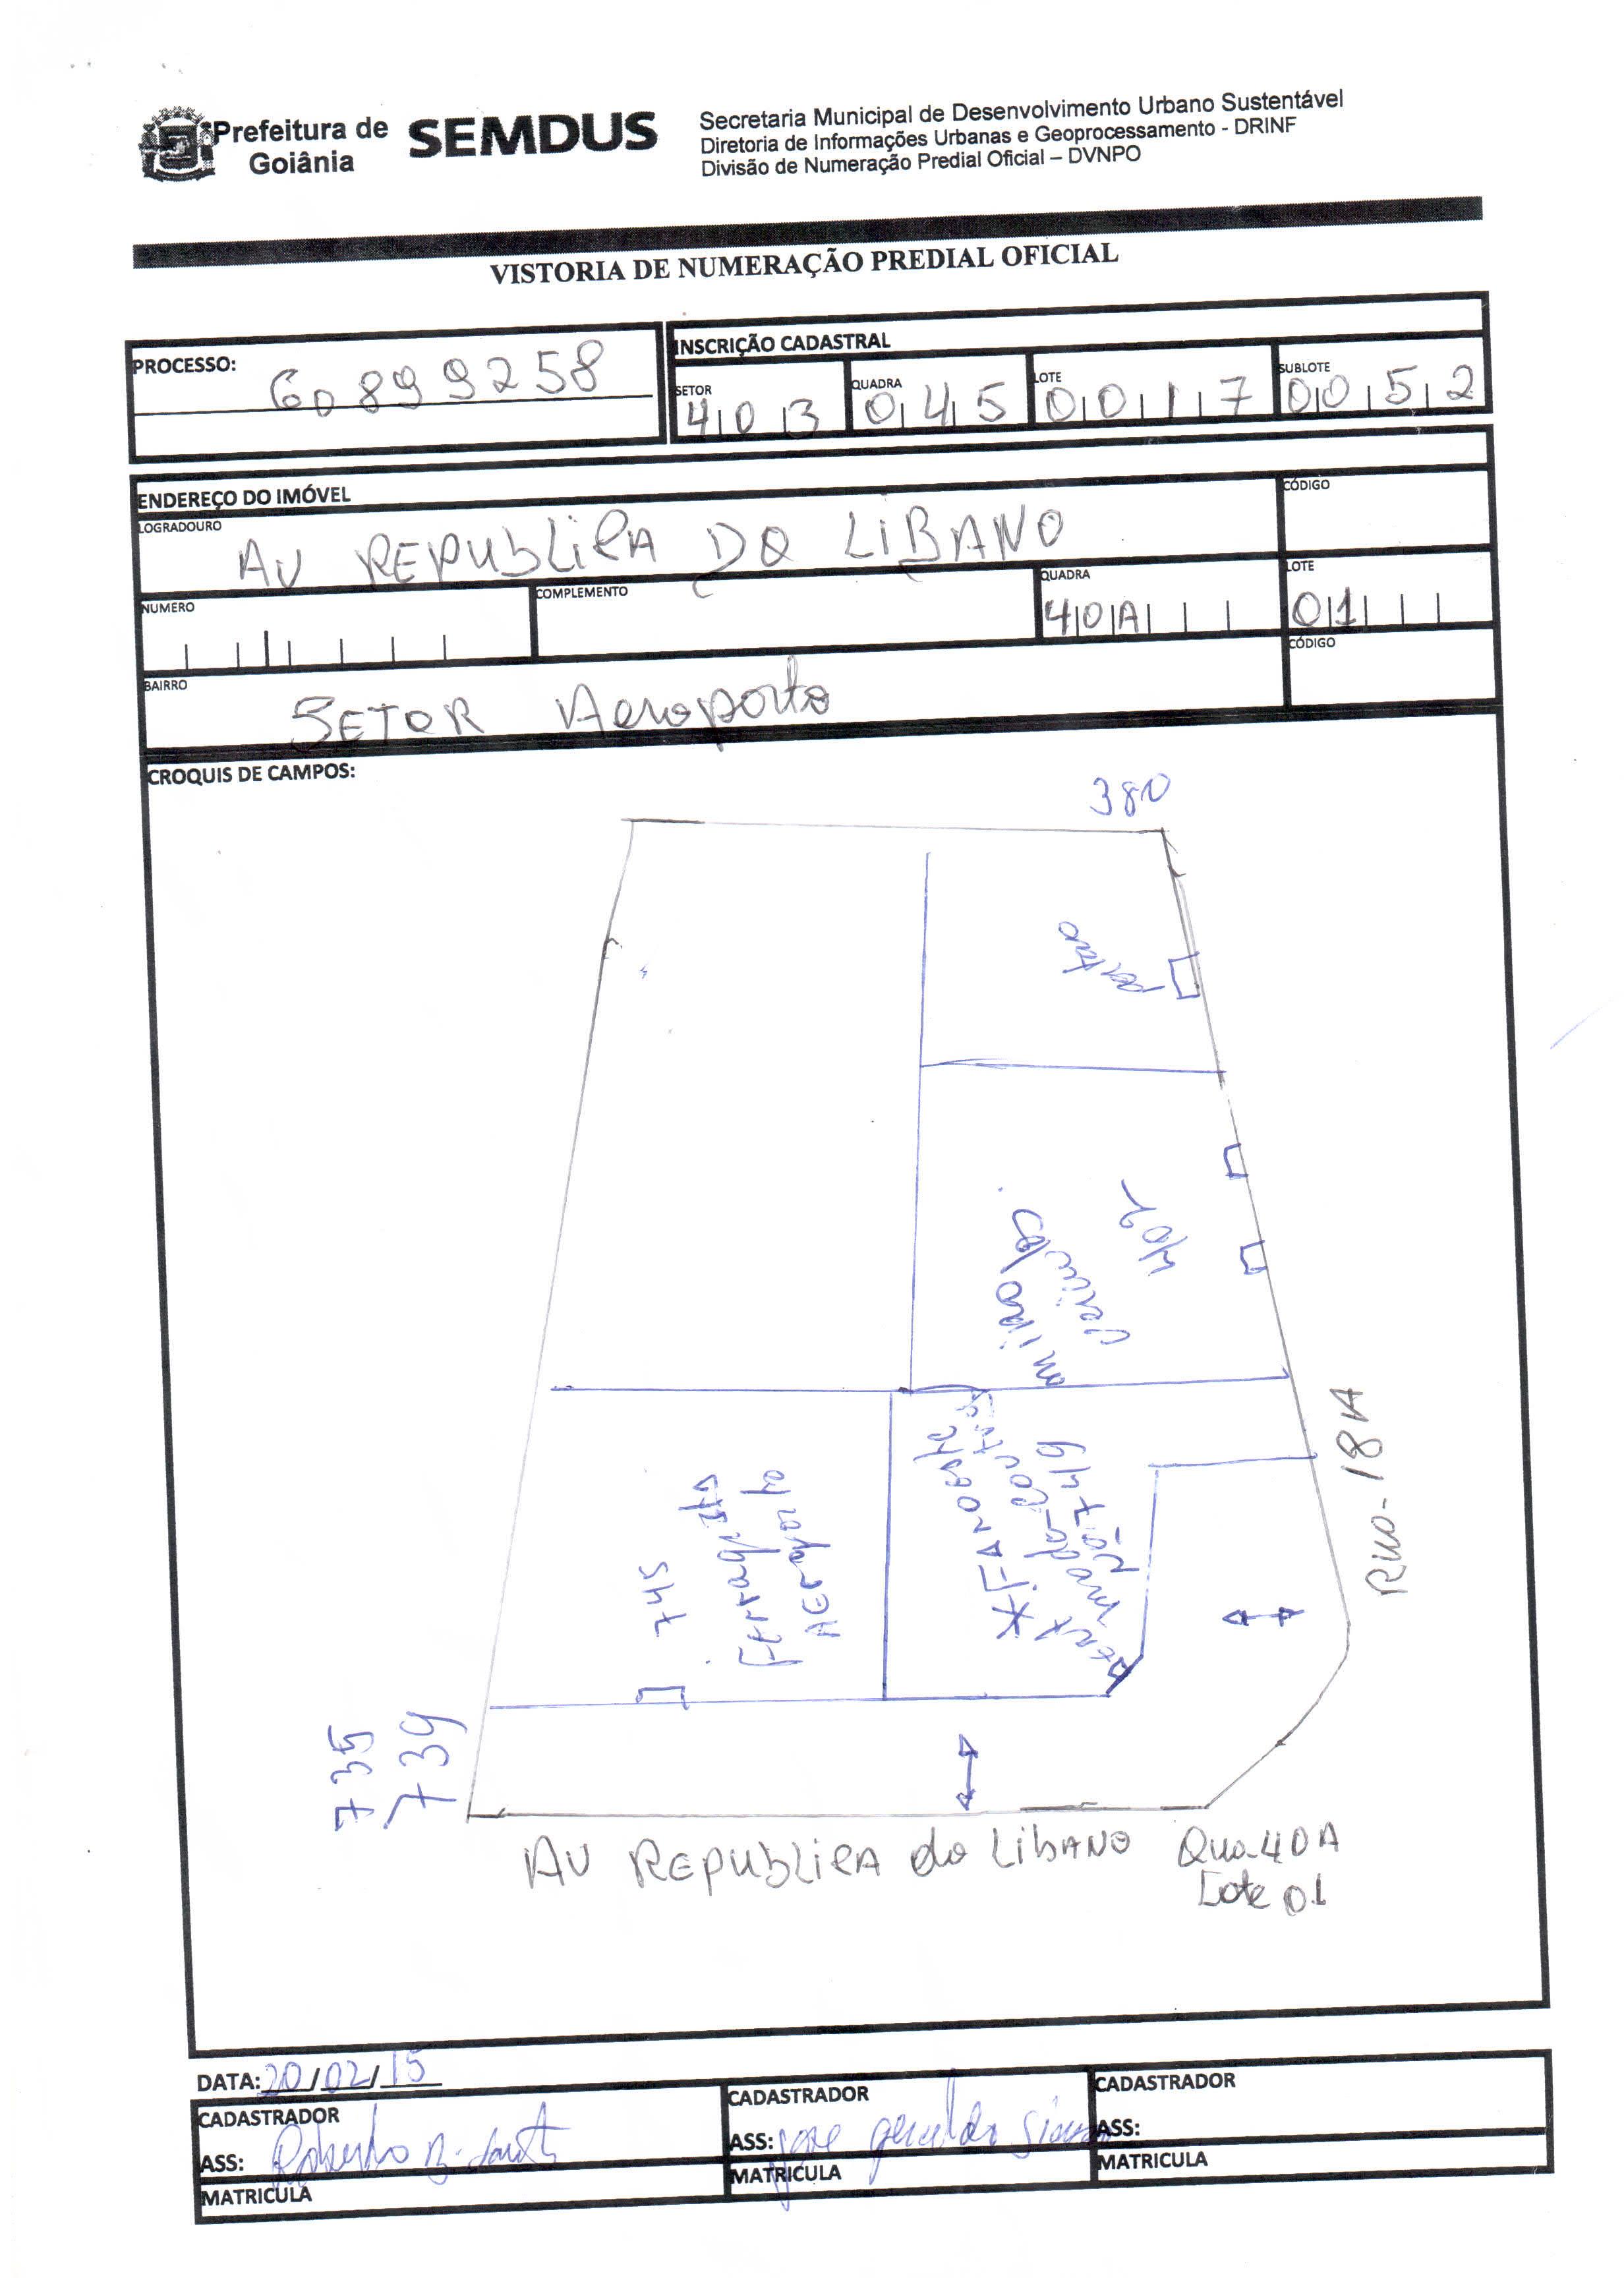 Prefeitura de
Goiânia
SEMDUS
Secretaria Municipal de Desenvolvimento Urbano Sustentável
Diretoria de Informações Urbanas e Geoprocessamento - DRINF
Divisão de Numeração Predial Oficial – DVNPO
VISTORIA DE NUMERAÇÃO PREDIAL OFICIAL
PROCESSO: 60899258
INSCRIÇÃO CADASTRAL
SETOR 403 QUADRA 045 LOTE 0017 SUBLOTE 0052
ENDEREÇO DO IMÓVEL
LOGRADOURO AV REPUbLiCA DO LIBANO CÓDIGO
NUMERO COMPLEMENTO QUADRA 40A LOTE 01
BAIRRO SETOR Aeroporto CÓDIGO
CROQUIS DE CAMPOS:
380
portao
402
745
Ferragista
AEroporto
FANOESTE
Nº 749
Rua-18A
735
739
AV REPUbLiCA do LibANO Qua-40A
Lote 01
DATA: 20/02/15
CADASTRADOR CADASTRADOR CADASTRADOR
ASS: Roberto B. ASS: jose geraldo ASS:
MATRICULA MATRICULA MATRICULA